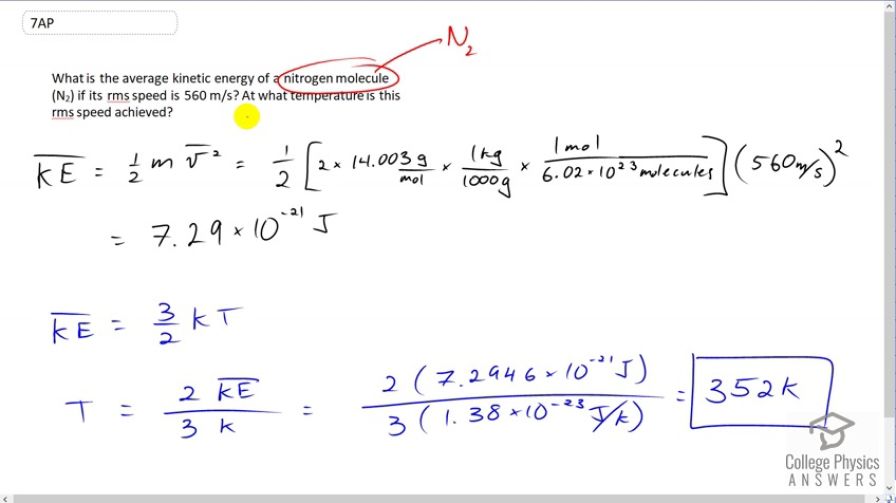 7AP
N₂
What is the average kinetic energy of a nitrogen molecule
(N₂) if its rms speed is 560 m/s? At what temperature is this
rms speed achieved?
K̅E̅ = 1/2 m v̅² = 1/2 [2 × 14.003 g/mol × 1kg/1000g × 1mol/6.02×10²³ molecules] (560 m/s)²
= 7.29 × 10⁻²¹ J
K̅E̅ = 3/2 k T
T = 2 K̅E̅ / 3 k = 2 (7.2946×10⁻²¹ J) / 3 (1.38×10⁻²³ J/K) = 352 K
College Physics
ANSWERS